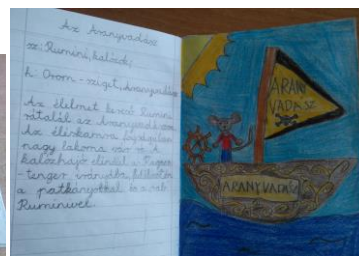 Az Aranyvadász
sz: Rumini, kalózok,
h: Orom-sziget, Aranyvadász
Az élelmet kereső Rumini
rátalál az Aranyvadászra.
Az éléskamra fogságában
nagy lakoma vár rá. A
kalózhajó elindul a
-tenger irányába, fedélzetén
a patkányokkal és a rab
Ruminivel.
ARANY
VADÁSZ
ARANYVADÁSZ